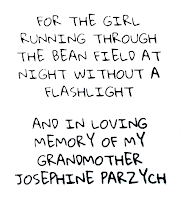 FOR THE GIRL
RUNNING THROUGH
THE BEAN FIELD AT
NIGHT WITHOUT A
FLASHLIGHT
AND IN LOVING
MEMORY OF MY
GRANDMOTHER
JOSEPHINE PARZYCH